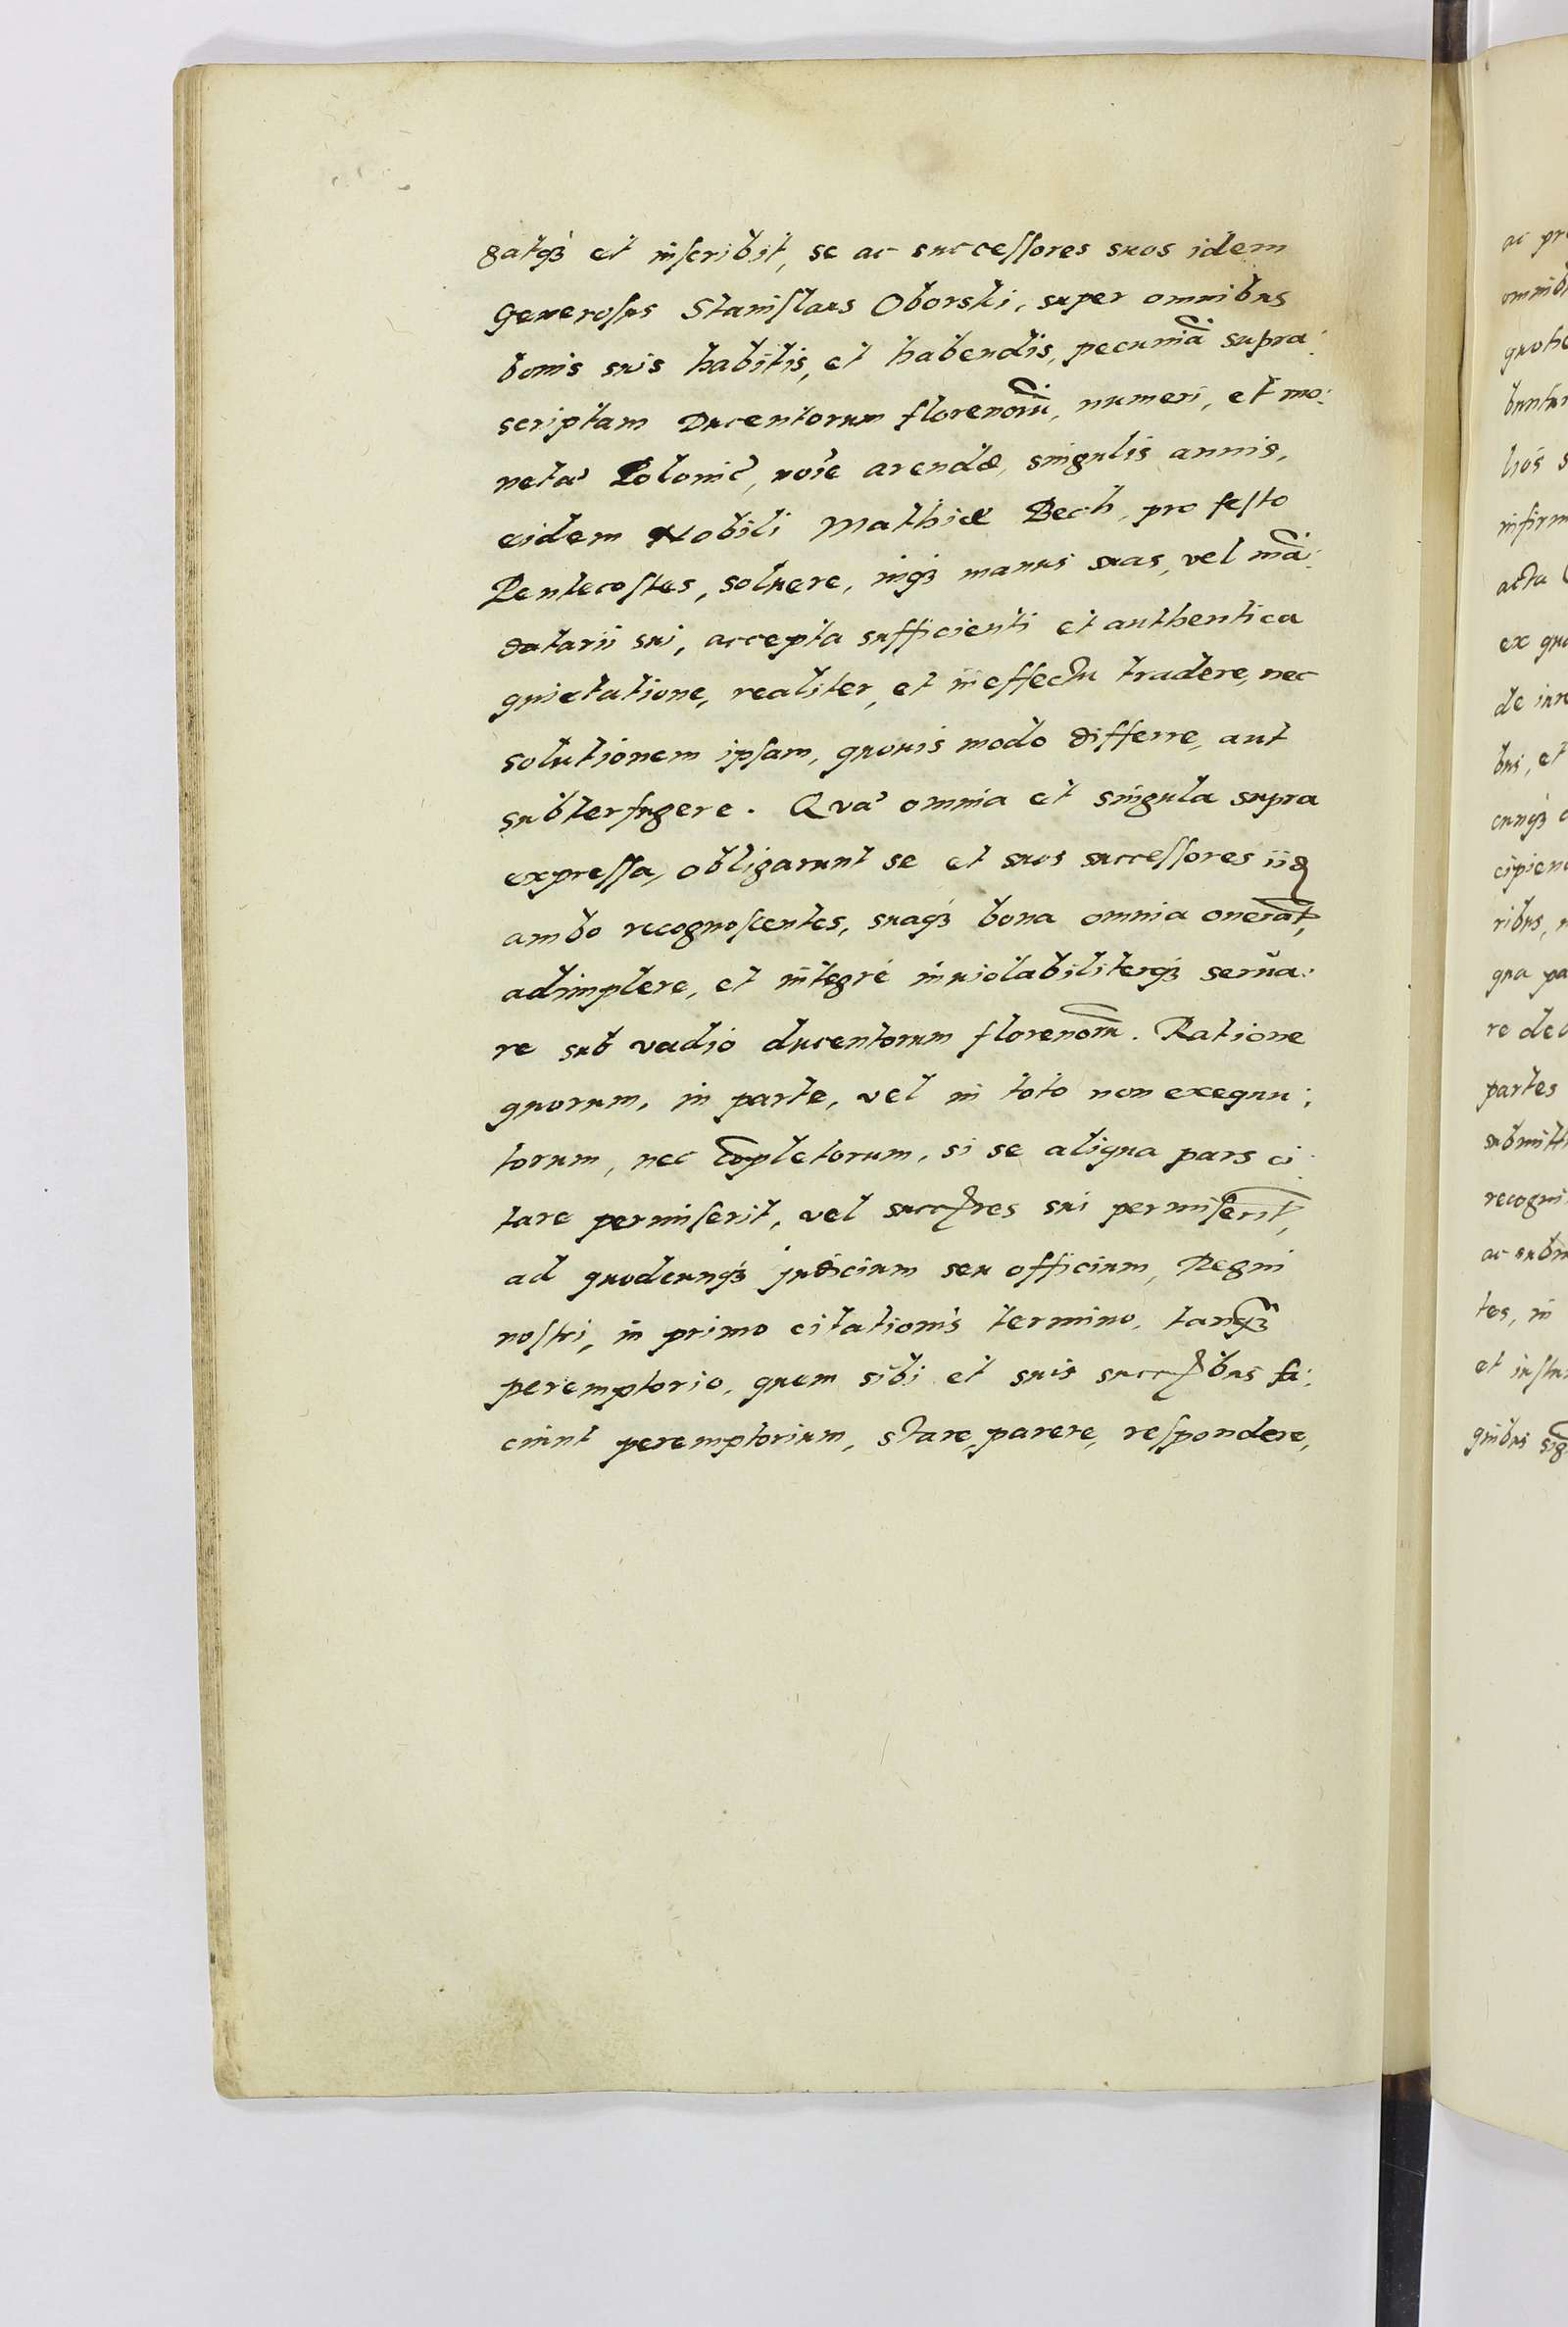 gatqȝ et inſcribit, se ac succeſſores suos idem
Generoſus Staniſlaus Oborski, super omnibus
bonis suis habitis, et habendis, pecuniā supra:
scriptam Ducentorum florenorū, numeri, et mo:
netæ Polonic̄, noīe arendæ, singulis annis,
eidem Nobili Mathiæ Bech, pro feſto
Pentecoſtes, soluere, inqȝ manus suas, vel mā:
datarii sui, accepta sufficienti et authentica
quietatione, realiter, et in effectu tradere, nec
solutionem ipſam, quouis modo differre, aut
subterfugere. Quæ omnia et singula supra
expreſſa, obligarunt se et suos succeſſores iid
ambo recognoſcentes, suaqȝ bona omnia onerāt,
adimplere, et integrè inuiolabiliterqȝ serua:
re sub vadio ducentorum florenorū. Ratione
quorum, in parte, vel in toto non exequu:
torum, nec cōpletorum, si se aliqua pars ci:
tare permiſerit, vel succẜres sui permiſerīt,
ad quodcunqȝ judicium seu officium, Regni
noſtri, in primo citationis termino, tanqȝ̄
peremptorio, quem sibi et suis succẜbus fa:
ciunt peremptorium, stare, parere, reſpondere,
ac pr
omnib
infirm
acta
ex qu
de iur
bus, et
cunqȝ
cipien
ribus,
qua pa
re de
partes
submitt
recogni
ac subm
tes, in
et inſtu
quibus sig